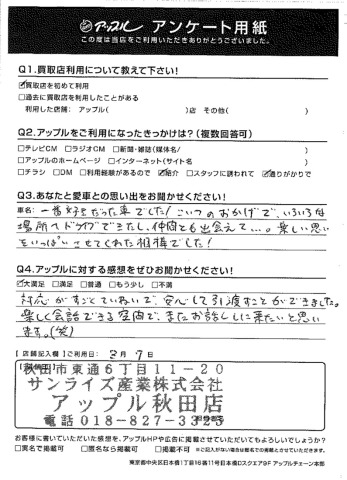 アップル アンケート用紙
この度は当店をご利用いただきありがとうございました。
Q1.買取店利用について教えて下さい!
☑買取店を初めて利用
□過去に買取店を利用したことがある
利用した店舗: アップル( )店 その他( )
Q2.アップルをご利用になったきっかけは?(複数回答可)
□テレビCM □ラジオCM □新聞・雑誌(媒体名/ )
□アップルのホームページ □インターネット(サイト名 )
□チラシ □DM □利用経験があるので ☑紹介 □スタッフに誘われて ☑通りがかりで
Q3.あなたと愛車との思い出をお聞かせください!
車名: 一番好きだった車でした!こいつのおかげで、いろいろな
場所へドライブできたし、仲間とも出会えて…。楽しい思い
をいっぱいさせてくれた相棒でした!
Q4.アップルに対する感想をぜひお聞かせください!
☑大満足 □満足 □普通 □もう少し □不満
対応がすごくていねいで、安心して引渡すことができました。
楽しく会話できる空間で、またお話ししに来たいと思い
ます。(笑)
【店舗記入欄】ご利用日: 3月 7日
秋田市東通6丁目11-20
サンライズ産業株式会社
アップル秋田店
電話018-827-332
お客様に書いていただいた感想を、アップルHPや広告に掲載させていただいてもよろしいでしょうか?
□実名で掲載可 □匿名なら掲載可 □掲載不可 ※ご記入がない場合は匿名での掲載とさせていただきます。
東京都中央区日本橋1丁目16番11号日本橋Dスクエア9F アップルチェーン本部